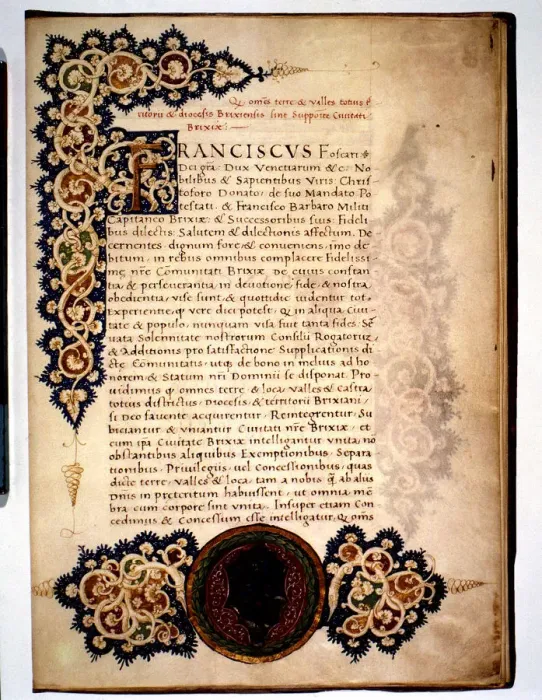 Q omes terre & valles totius t
ritorii & diocesis Brixiensis sint Supposite Civitati
Brixiæ: —
FRANCISCVS Foscari
Dei gra: Dux Venetiarum &c: No
bilibus & Sapientibus Viris Chris
toforo Donato: de suo Mandato: Po
testati: & Francisco Barbaro Militi
Capitaneo Brixiæ: & Successoribus suis: Fideli
bus dilectis: Salutem & dilectionis affectum. De
cernentes: dignum fore & conveniens, imo de
bitum, in rebus omnibus complacere Fidelissi
mę nrę Comunitati Brixię. De cuius constan
tia & perseverantia in devotione, fide & nostra
obedientia, vise sunt, & quottidie videntur tot
Experientię, qr vere dici potest, Q in aliqua Civi
tate & populo, nunquam visa fuit tanta fides: Ser
vata Solennitate nostrorum Consilii Rogatorum
& additionis pro satisfactione Supplicationis di
ctę Comunitatis: utqr de bono in melius ad ho
norem & Statum nri Dominii se disponat. Pro
vidimus qr omnes terre & loca, Valles & Castra
totius districtus, Diocesis, & territorii Brixiani,
si Deo favente acquirentur, Reintegrentur, Su
biciantur & vniantur Civitati nrę Brixię, et
cum ipa Civitate Brixię intelligantur vnita, nō
obstantibus aliquibus Exemptionibus, Separa
tionibus, Privilegiis, vel Concessionibus, quas
dictę terre, valles & loca, tam a nobis q̄ ab aliis
Dnis in preteritum habuissent, ut omnia mē
bra cum corpore sint vnita. Insuper etiam Con
cedimus & Concessum esse intelligatur, Q omīs